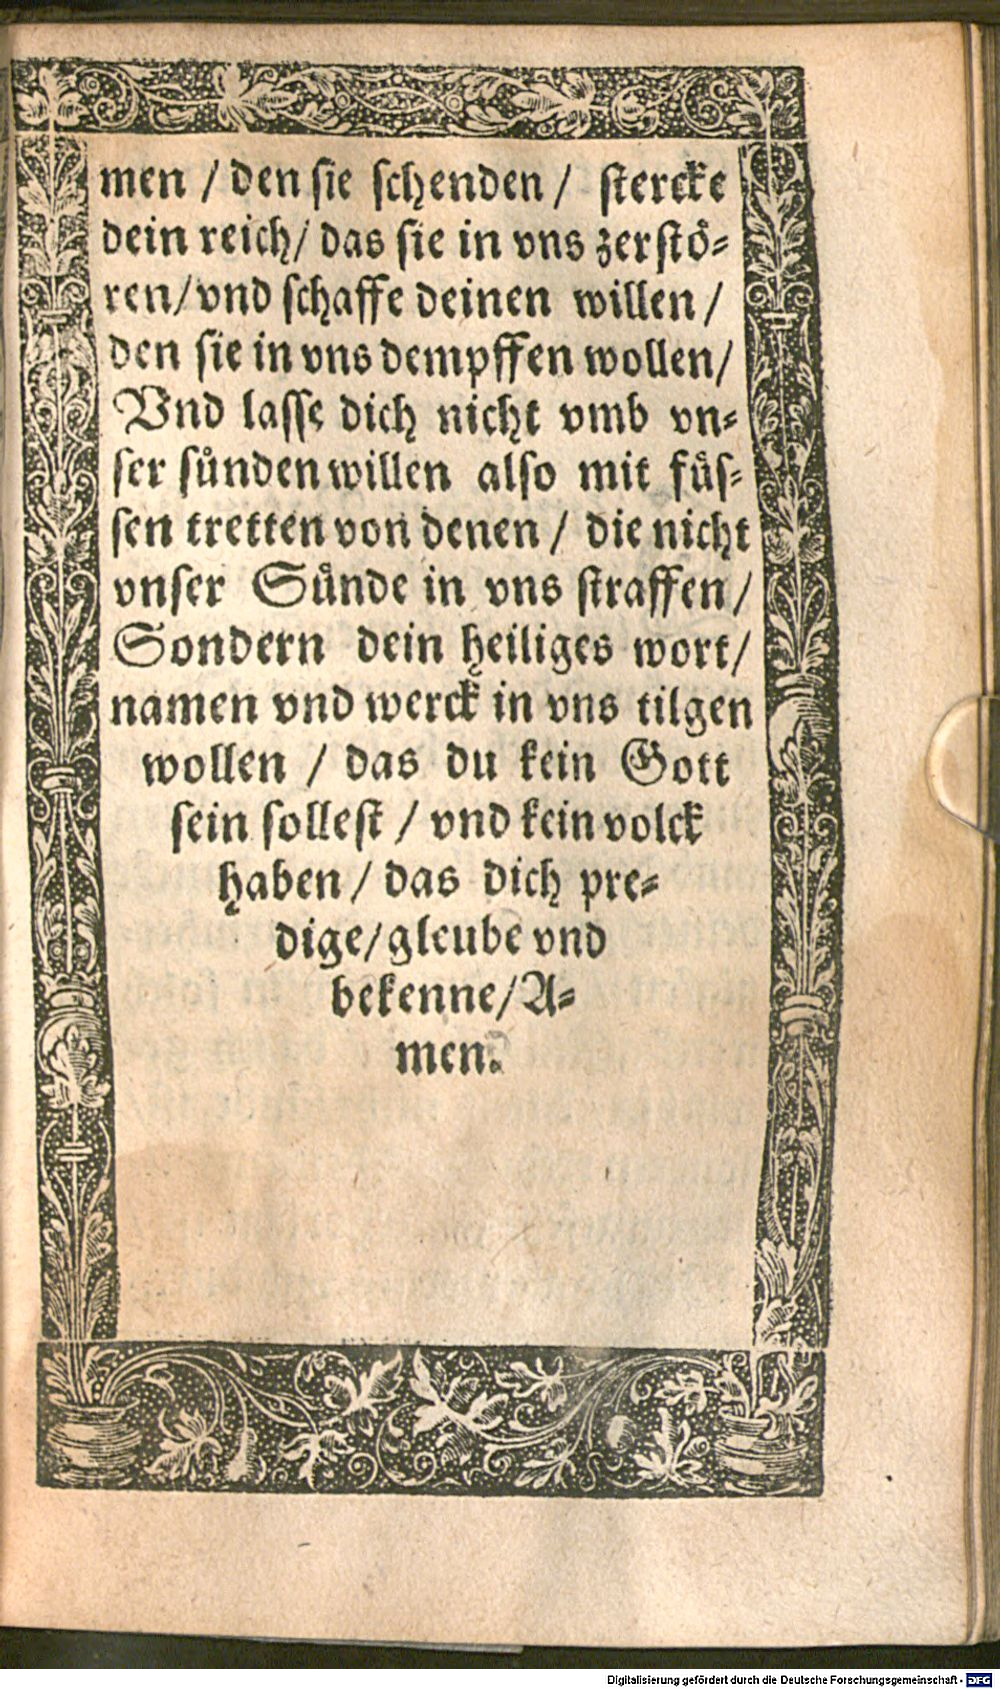 men / den sie schenden / stercke
dein reich / das sie in vns zerstoͤ⸗
ren / vnd schaffe deinen willen /
den sie in vns dempffen wollen /
Vnd lasse dich nicht vmb vn⸗
ser suͤnden willen also mit fuͤs⸗
sen tretten von denen / die nicht
vnser Suͤnde in vns straffen /
Sondern dein heiliges wort /
namen vnd werck in vns tilgen
wollen / das du kein Gott
sein sollest / vnd kein volck
haben / das dich pre⸗
dige / gleube vnd
bekenne / A⸗
men.
Digitalisierung gefördert durch die Deutsche Forschungsgemeinschaft - DFG